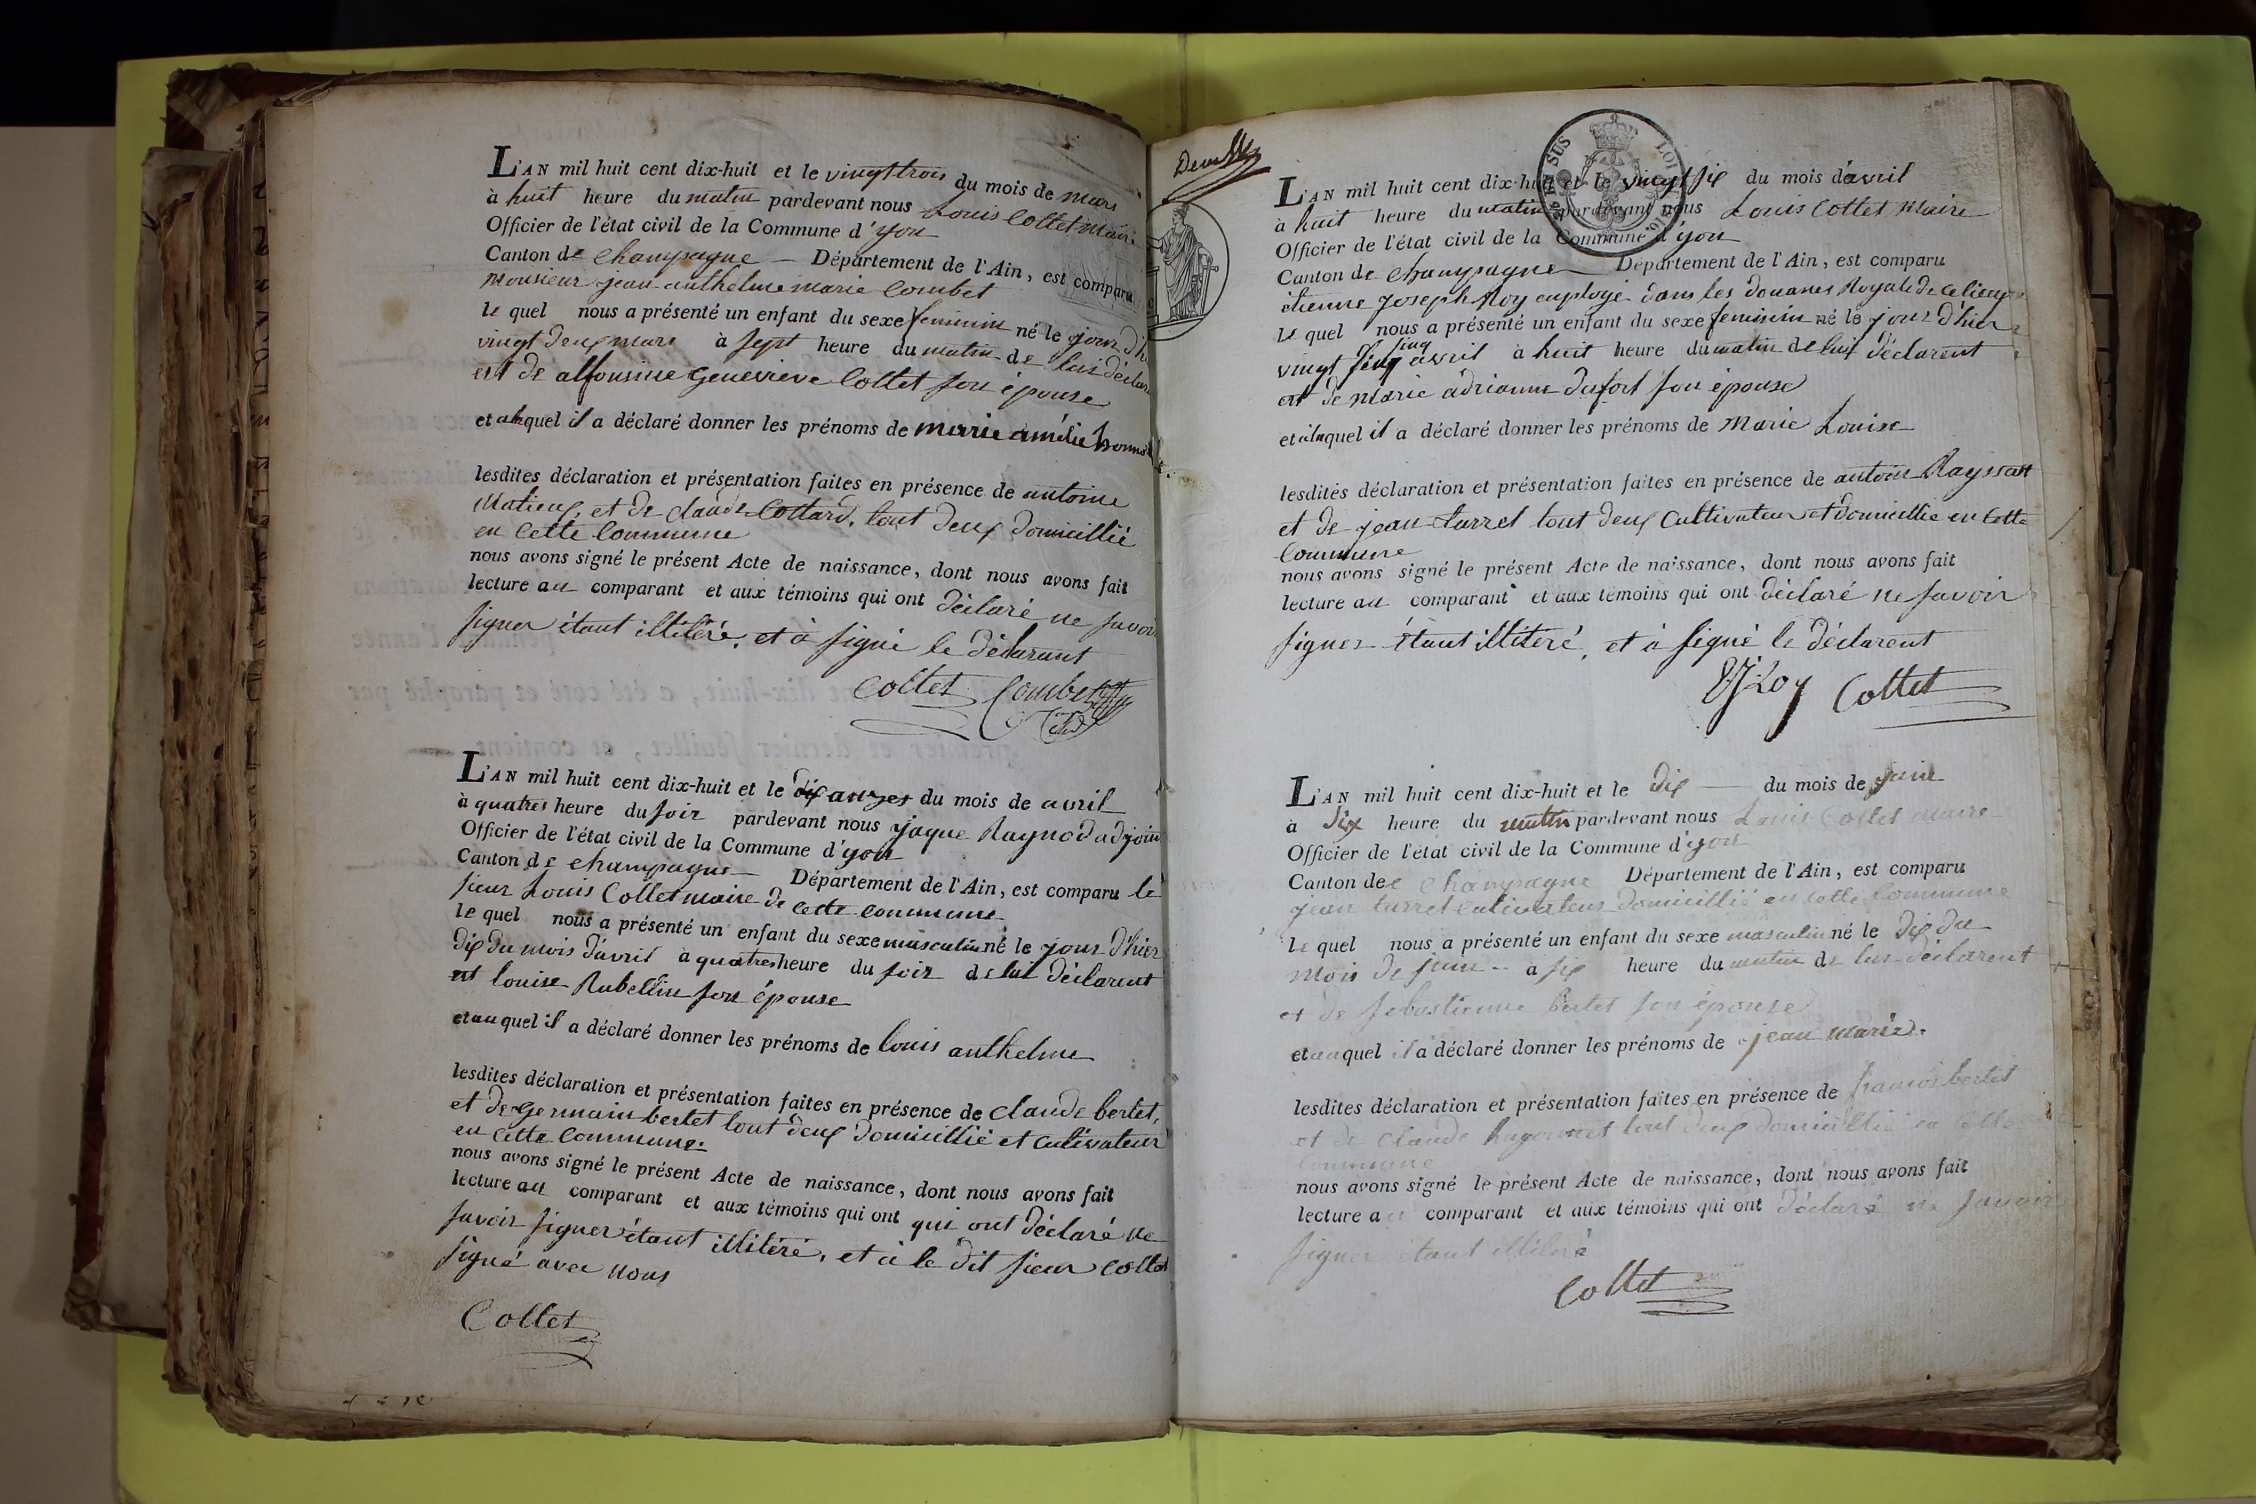 L'AN mil huit cent dix-huit et le vingt trois du mois de mars
à huit heure du matin pardevant nous Louis Collet maire
Officier de l'état civil de la Commune d'yon
Canton de Champagne — Département de l'Ain, est comparu
Monsieur jean anthelme marie Combet
le quel nous a présenté un enfant du sexe feminin né le jour d'h
vingt deux mars à sept heure du matin de lui déclar
ent de alfonsine Genevieve Collet son épouse
et ahquel il a déclaré donner les prénoms de marie amélie
lesdites déclaration et présentation faites en présence de antoine
Matieux, et de claude Collard, tout deux domicillié
en cette Commune
nous avons signé le présent Acte de naissance, dont nous avons fait
lecture au comparant et aux témoins qui ont déclaré ne savoir
signer étant illitéré, et à signé le déclarant
Collet Combet
L'AN mil huit cent dix-huit et le dix onzes du mois de avril
à quatres heure du soir pardevant nous jaque Raynod adjoint
Officier de l'état civil de la Commune d'yon
Canton de Champagne — Département de l'Ain, est comparu le
sieur Louis Collet maire de cette commune
le quel nous a présenté un enfant du sexe masculin né le jour d'hier
dix du mois d'avril à quatres heure du soir de lui déclarent
et louise Rubellin son épouse
et au quel il a déclaré donner les prénoms de louis anthelme
lesdites déclaration et présentation faites en présence de claude bertet,
et de germain bertet tout deux domicillié et cultivateur
en cette Commune.
nous avons signé le présent Acte de naissance, dont nous avons fait
lecture au comparant et aux témoins qui ont qui ont déclaré ne
savoir signer étant illitéré, et à le dit sieur Collet
signé avec nous
Collet
L'AN mil huit cent dix-huit et le vingt six du mois d'avril
à huit heure du matin pardevant nous Louis Collet Maire
Officier de l'état civil de la Commune d'yon
Canton de Champagne Département de l'Ain, est comparu
étienne Joseph Roy employé dans les douanes Royale de ce lieux
le quel nous a présenté un enfant du sexe feminin né le jour d'hier
sinq
vingt avril à huit heure du matin de lui déclarent
et de Marie adrianne Dufort son épouse
et à laquel il a déclaré donner les prénoms de Marie Louise
lesdites déclaration et présentation faites en présence de antoin
et de jean turrel tout deux Cultivateur et domicillié en cette
Commune
nous avons signé le présent Acte de naissance, dont nous avons fait
lecture au comparant et aux témoins qui ont déclaré ne savoir
signer étant illitéré, et à signé le déclarent
EJ Roy Collet
L'AN mil huit cent dix-huit et le Dix — du mois de juin
à Dix heure du matin pardevant nous Louis Collet maire
Officier de l'état civil de la Commune d'yon
Canton de Champagne Département de l'Ain, est comparu
jean turrel cultivateur domicillié en cette Commune
le quel nous a présenté un enfant du sexe masculin né le Dix du
Mois de juin à six heure du matin de lui déclarent
et de sebastienne bertet son épouse
et au quel il a déclaré donner les prénoms de jean marie.
lesdites déclaration et présentation faites en présence de francois bertet
et de Claude hugonnet tout deux domicillié en cette
Commune
nous avons signé le présent Acte de naissance, dont nous avons fait
lecture au comparant et aux témoins qui ont déclaré ne savoir
signer étant illitéré
Collet